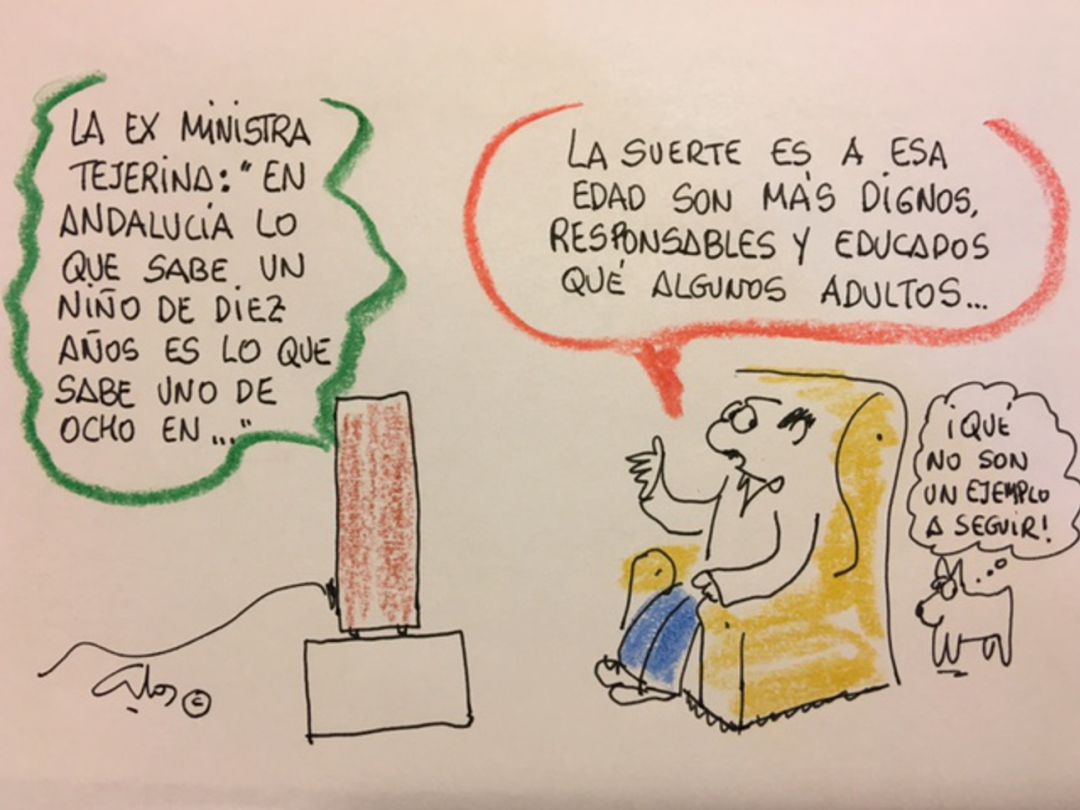 LA EX MINISTRA
TEJERINA: "EN
ANDALUCÍA LO
QUE SABE UN
NIÑO DE DIEZ
AÑOS ES LO QUE
SABE UNO DE
OCHO EN ..."
LA SUERTE ES A ESA
EDAD SON MÁS DIGNOS,
RESPONSABLES Y EDUCADOS
QUÉ ALGUNOS ADULTOS...
¡QUÉ
NO SON
UN EJEMPLO
A SEGUIR!
©